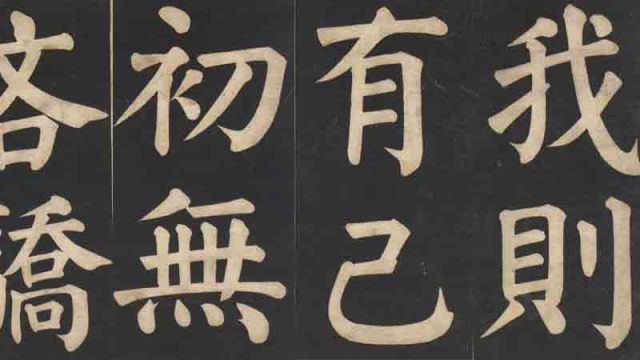 我則
有己
初無
吝驕